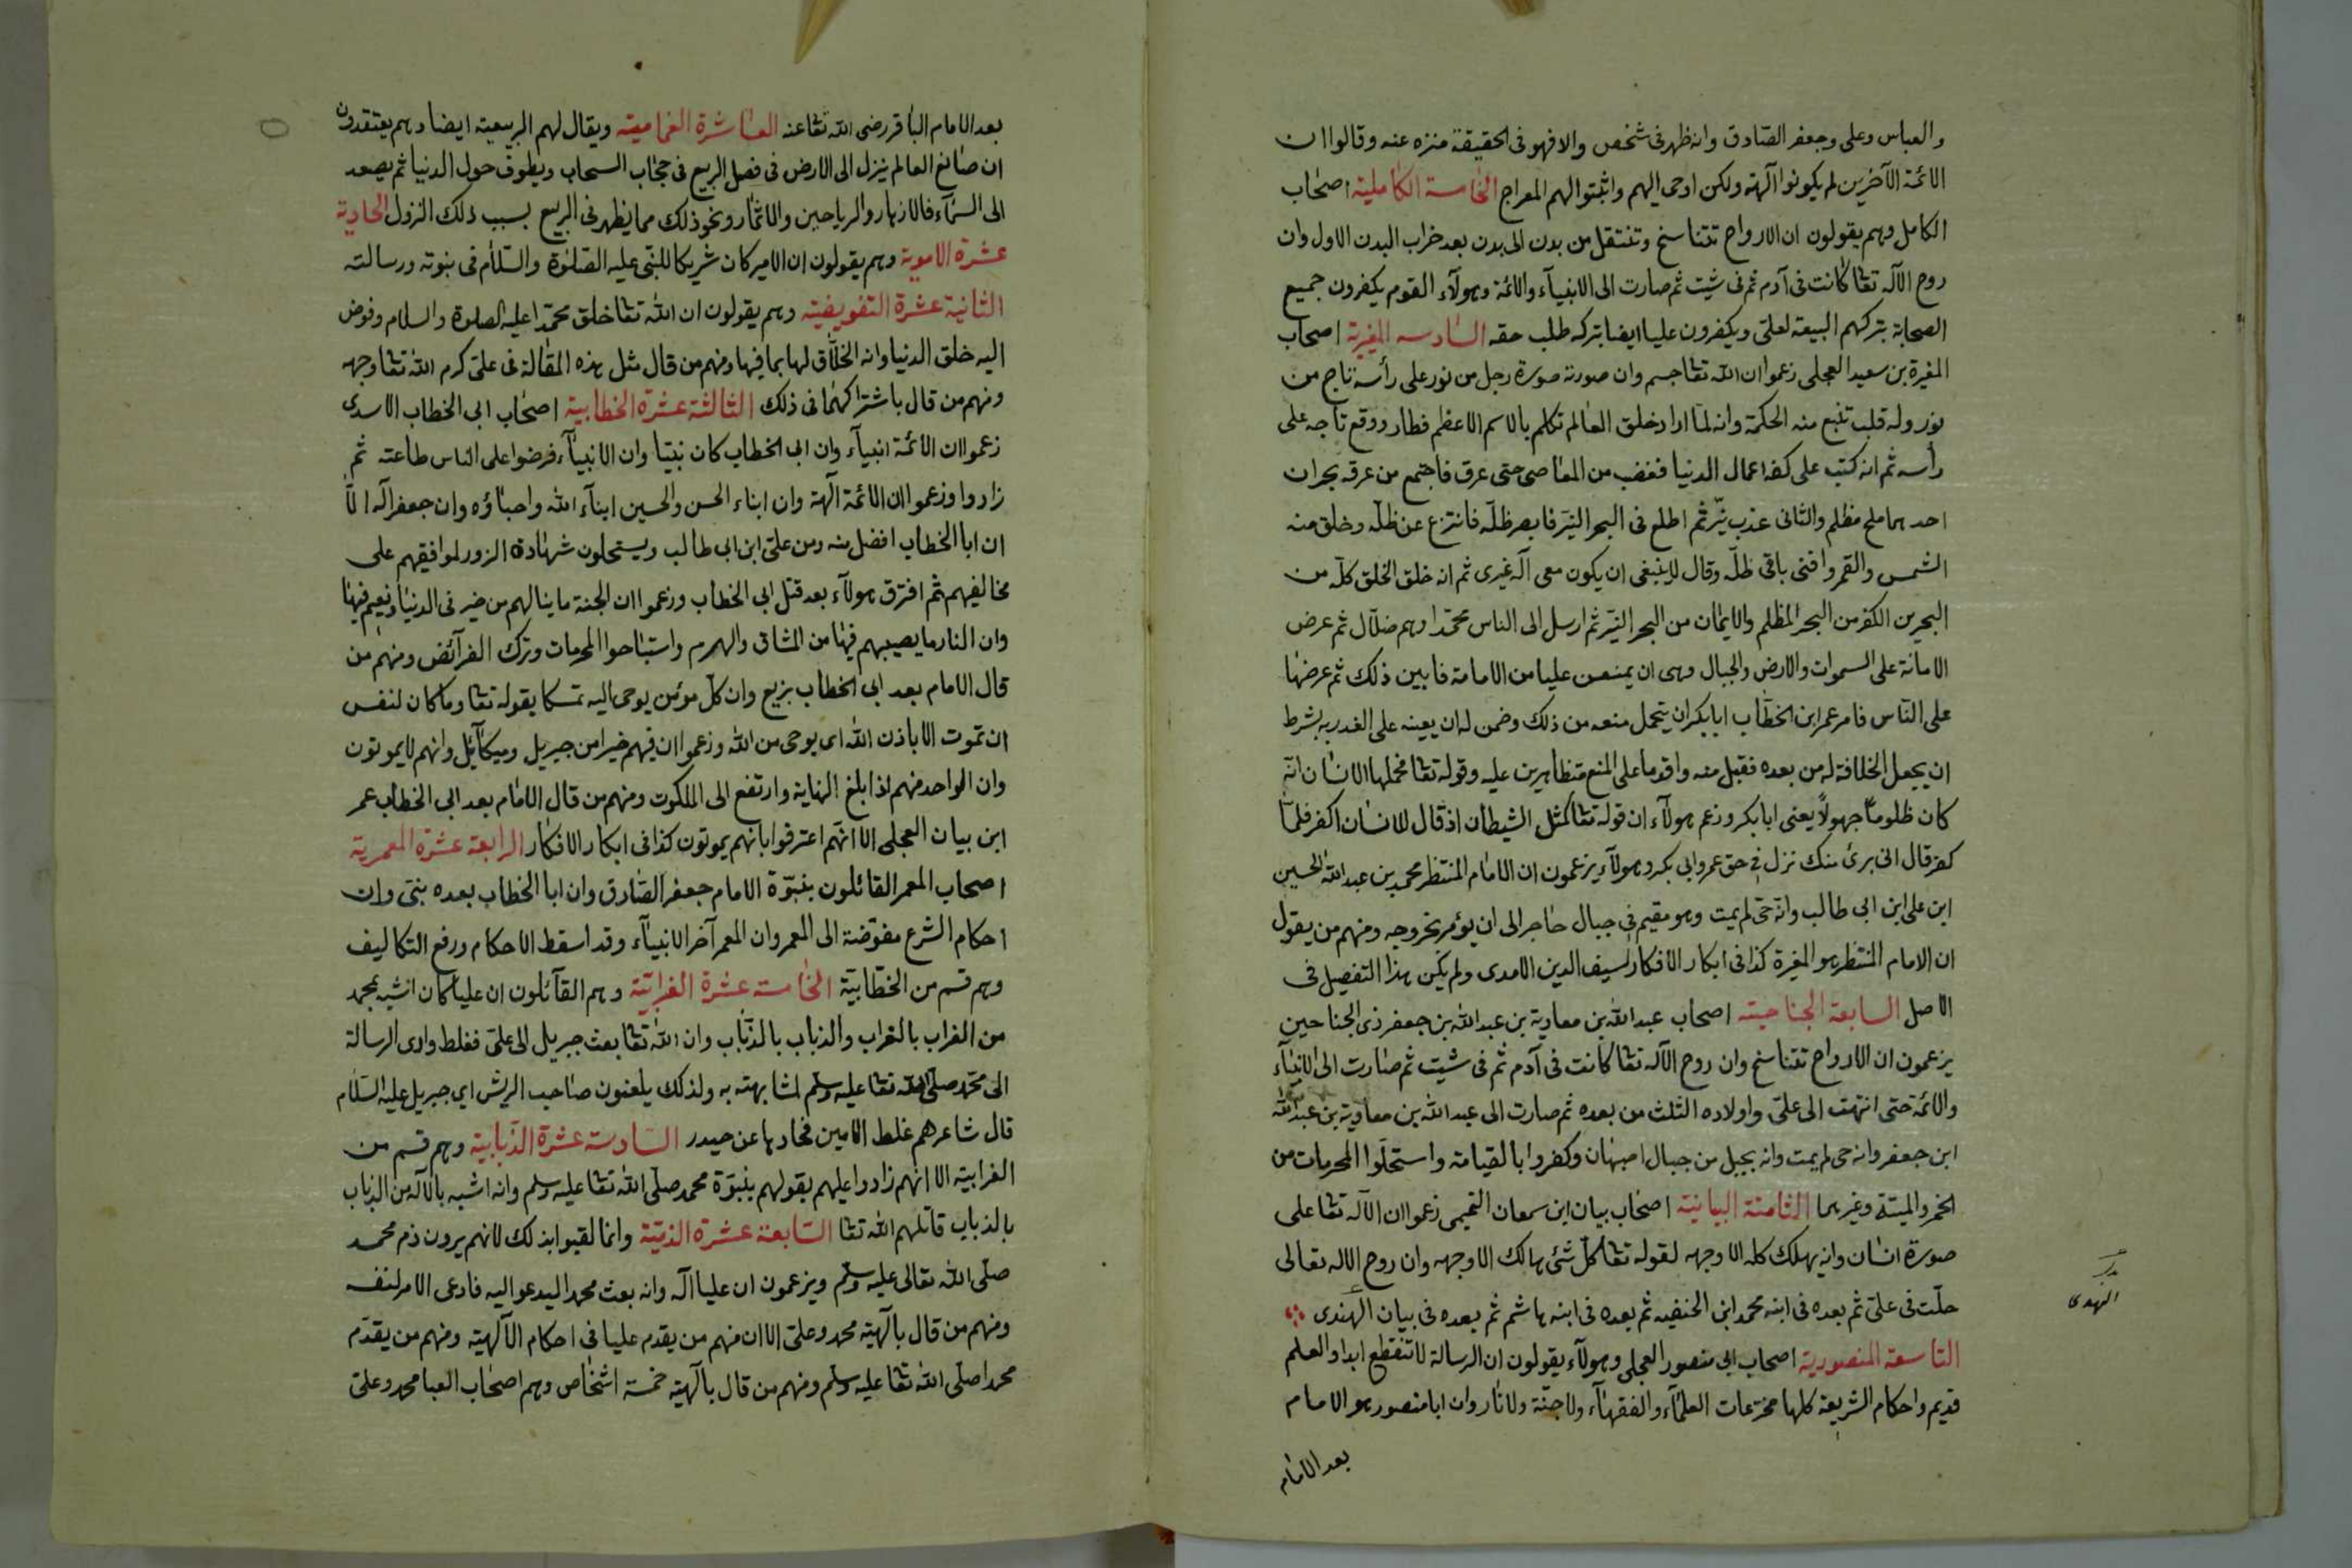 والعباس وعلى وجعفر الصّادق وانه ظهر فى شخص والا فهو فى الحقيقة منزه عنه وقالوا ان
الائمة الآخرين لم يكونوا آلهة ولكن اوحى اليهم واثبتوا لهم المعراج الخامسة الكاملية اصحاب
الكامل وهم يقولون ان الارواح تتناسخ وتنتقل من بدن الى بدن بعد خراب البدن الاول وان
روح الآله تعا كانت فى آدم ثم فى شيث ثم صارت الى الانبيآء والائمة وهولآء القوم يكفرون جميع
الصحابة بتركهم البيعة لعلى ويكفرون عليا ايضا بتركه طلب حقه السادسه المغيرية اصحاب
المغيرة بن سعيد العجلى زعموا ان الله تعا جسم وان صورته صورة رجل من نور على رأسه تاج من
نور وله قلب تنبع منه الحكمة وانه لمّا اراد خلق العالم تكلم بالاسم الاعظم فطار ووقع تاجه على
رأسه ثم انه كتب على كفه اعمال الدنيا فغضب من المعاصى حتى عرق فاجتمع من عرقه بحران
احدهما ملح مظلم والثانى عذب نيّر ثم اطلع فى البحر النيّر فابصر ظلّه فانتزع عن ظلّه وخلق منه
الشمس والقمر وافنى باقى ظلّه وقال لا ينبغى ان يكون معى آله غيرى ثم انه خلق الخلق كلّه من
البحرين الكفر من البحر المظلم والايمان من البحر النيّر ثم ارسل الى الناس محمّدا وهم ضلّال ثم عرض
الامانة على السموات والارض والجبال وهى ان يمنعن عليا من الامامة فابين ذلك ثم عرضها
على النّاس فامر عمر ابن الخطّاب ابا بكر ان يتحمل منعه من ذلك وضمن له ان يعينه على الغدر به بشرط
ان يجعل الخلافة له من بعده فقبل منه واقدما على المنع متظاهرين عليه وقوله تعا فحملها الانسان انّه
كان ظلوماً جهولاً يعنى ابا بكر وزعم هولآء ان قوله تعا كمثل الشيطان اذ قال للانسان اكفر فلمّا
كفر قال انى برئ منك نزل فى حق عمر وابى بكر وهولآء يزعمون ان الامام المنتظر محمد بن عبد الله الحسين
ابن على ابن ابى طالب وانّه حىّ لم يمت وهو مقيم فى جبال حاجر الى ان يؤمر بخروجه ومنهم من يقول
ان الامام المنتظر هو المغيرة كذا فى ابكار الافكار لسيف الدين الامدى ولم يكن هذا التفصيل فى
الاصل السابعة الجناحيته اصحاب عبد الله بن معاوية بن عبد الله بن جعفر ذى الجناحين
يزعمون ان الارواح تتناسخ وان روح الآله تعا كانت فى آدم ثم فى شيث ثم صارت الى الانبيآء
والائمة حتى انتهت الى علىّ واولاده الثلث من بعده ثم صارت الى عبد الله بن معاوية بن عبد الله
ابن جعفر وانه حى لم يمت وانه بجبل من جبال اصبهان وكفروا بالقيامة واستحلّوا المحرمات من
الخمر والميتة وغيرهما الثامنة البيانية اصحاب بيان ابن سمعان التميمى زعموا ان الآله تعا على
صورة انسان وانه يهلك كله الا وجهه لقوله تعا كلّ شئ هالك الا وجهه وان روح الاله تعالى
حلّت فى علىّ ثم بعده فى ابنه محمد ابن الحنفيه ثم بعده فى ابنه هاشم ثم بعده فى بيان الهندى
النهدى
التاسعة المنصورية اصحاب ابى منصور العجلى وهولآء يقولون ان الرسالة لا تنقطع ابدا والعلم
قديم واحكام الشريعة كلها مخترعات العلمآء والفقهآء ولا جنّة ولا نار وان ابا منصور هو الامام
بعد الامام
بعد الامام الباقر رضى الله تعا عنه العاشرة الغماميته ويقال لهم الربيعيته ايضا وهم يعتقدون
ان صانع العالم ينزل الى الارض فى فصل الربيع فى حجاب السحاب ويطوف حول الدنيا ثم يصعد
الى السمآء فالازهار والرياحين والاثمار ونحو ذلك مما يظهر فى الربيع بسبب ذلك النزول الحادية
عشرة الاموية وهم يقولون ان الامير كان شريكا للنبى عليه الصّلوة والسّلام فى نبوته ورسالته
الثانية عشرة التفويضيته وهم يقولون ان الله تعا خلق محمّدا عليه الصلوة والسلام وفوض
اليه خلق الدنيا وانه الخلّاق لها بما فيها ومنهم من قال مثل هذه المقالة فى علىّ كرم الله تعا وجهه
ومنهم من قال باشتراكهما فى ذلك الثالثة عشرة الخطابية اصحاب ابى الخطاب الاسدى
زعموا ان الائمة انبيآء وان ابى الخطاب كان نبيّا وان الانبيآء فرضوا على الناس طاعته ثم
زادوا وزعموا ان الائمة آلهة وان ابناء الحسن والحسين ابنآء الله واحباؤه وان جعفر آله الّا
ان ابا الخطاب افضل منه ومن علىّ ابن ابى طالب ويستحلون شهادة الزور لموافقيهم على
مخالفيهم ثم افترق هولآء بعد قتل ابى الخطاب وزعموا ان الجنة ما ينالهم من خير فى الدنيا ونعيم فيها
وان النار ما يصيبهم فيها من المشاق والهرم واستباحوا المحرمات وترك الفرآئض ومنهم من
قال الامام بعد ابى الخطاب بزيع وان كلّ مؤمن يوحى اليه تمسكا بقوله تعا وما كان لنفس
ان تموت الا باذن الله اى يوحى من الله وزعموا ان فيهم خيرا من جبريل وميكآئيل وانهم لا يموتون
وان الواحد منهم اذا بلغ النهاية وارتفع الى الملكوت ومنهم من قال الامام بعد ابى الخطاب عمر
ابن بيان العجلى الا انّهم اعترفوا بانهم يموتون كذا فى ابكار الافكار الرابعة عشرة المعمرية
اصحاب المعمر القائلون بنبوّة الامام جعفر الصّادق وان ابا الخطاب بعده نبىّ وان
احكام الشرع مفوّضة الى المعمر وان المعمر آخر الانبيآء وقد اسقط الاحكام ورفع التكاليف
وهم قسم من الخطّابيّة الخامسة عشرة الغرابيّة وهم القآئلون ان عليا كان اشبه بمحمد
من الغراب بالغراب والذباب بالذّباب وان الله تعا بعث جبريل الى علىّ فغلط وادى الرسالة
الى محمّد صلّى الله تعا عليه وسلم لمشابهته به ولذلك يلعنون صاحب الريش اى جبريل عليه السّلام
قال شاعرهم غلط الامين فحادها عن حيدر السادسة عشرة الذبابية وهم قسم من
الغرابية الا انهم زادوا عليهم بقولهم بنبوّة محمد صلّى الله تعا عليه وسلم وانه اشبه بالآله من الذباب
بالذباب قاتلهم الله تعا السّابعة عشرة الذميّة وانما لقبوا بذلك لانهم يرون ذم محمد
صلّى الله تعالى عليه وسلم ويزعمون ان عليا آله وانه بعث محمدا ليدعو اليه فادعى الامر لنفسه
ومنهم من قال بآلهيّة محمد وعلىّ الا ان منهم من يقدم عليا فى احكام الآلهية ومنهم من يقدّم
محمدا صلّى الله تعا عليه وسلم ومنهم من قال بآلهية خمسة اشخاص وهم اصحاب العبا محمد وعلىّ